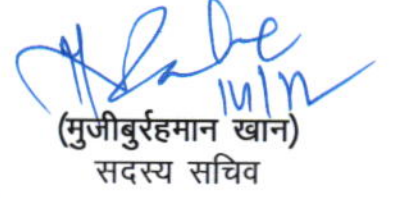 14/12
(मुजीबुर्रहमान खान)
सदस्य सचिव